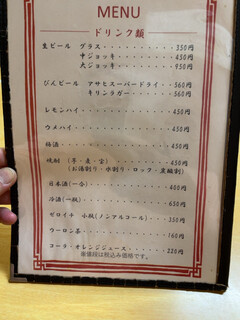 MENU
ドリンク類
生ビール グラス・・・・・・・・・・・350円
中ジョッキ・・・・・・・・・450円
大ジョッキ・・・・・・・・・950円
びんビール アサヒスーパードライ・・・560円
キリンラガー・・・・・・560円
レモンハイ・・・・・・・・・・・・・450円
ウメハイ・・・・・・・・・・・・・・450円
梅酒・・・・・・・・・・・・・・・・450円
焼酎 (芋・麦・宝)・・・・・・・・・450円
(お湯割り・水割り・ロック・炭酸割)
日本酒(一合)・・・・・・・・・・・400円
冷酒(一瓶)・・・・・・・・・・・・630円
ゼロイチ 小瓶(ノンアルコール)・・・350円
ウーロン茶・・・・・・・・・・・・・160円
コーラ・オレンジジュース・・・・・・220円
価格は税込み価格です。